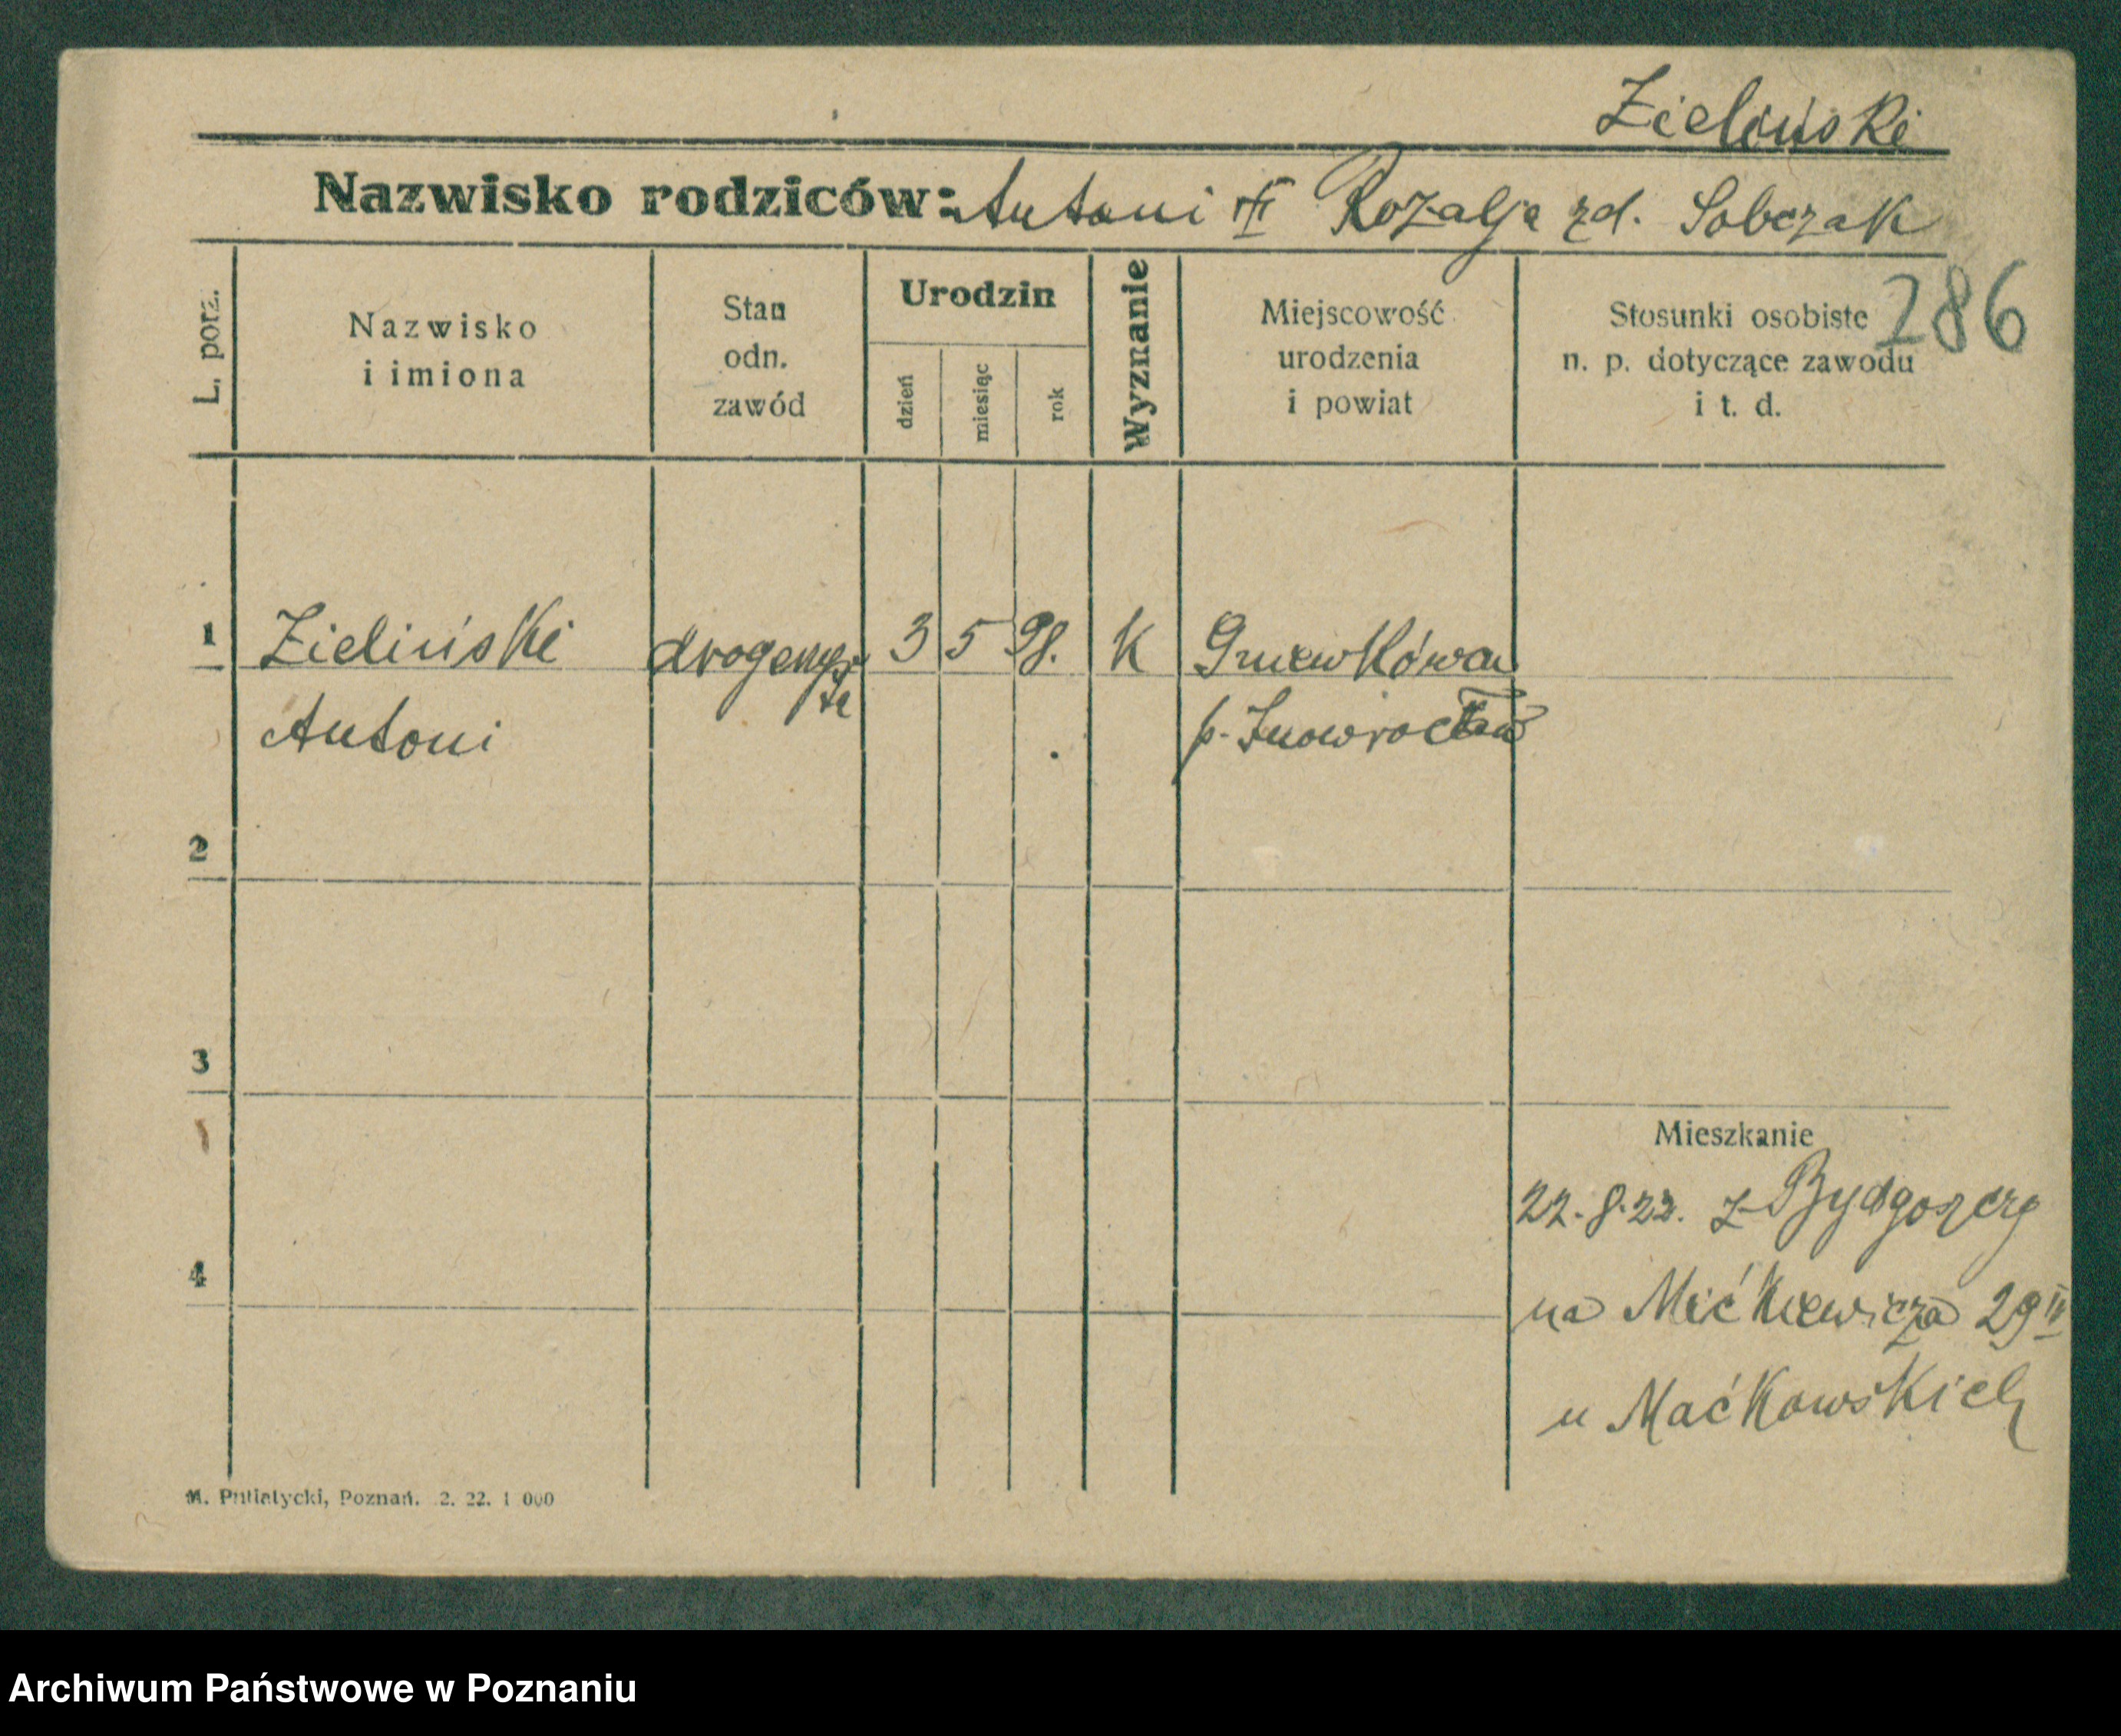 Zieliński
Nazwisko rodziców: Antoni Rozalja zd. Sobczak
286
L. porz.
Nazwisko
i imiona
Stan
odn.
zawód
Urodzin
dzień
miesiąc
rok
Wyznanie
Miejscowość
urodzenia
i powiat
Stosunki osobiste
n. p. dotyczące zawodu
i t. d.
1 Zieliński drogerzy 3 5 98. K Gniewkówa
sta
Antoni p. Inowrocław
2
3
Mieszkanie
22.8.22. z Bydgoszczy
4
na Mićkiewicza 29 II
u Maćkowskich
M. Putiatycki, Poznań. 2. 22. 1 000
Archiwum Państwowe w Poznaniu